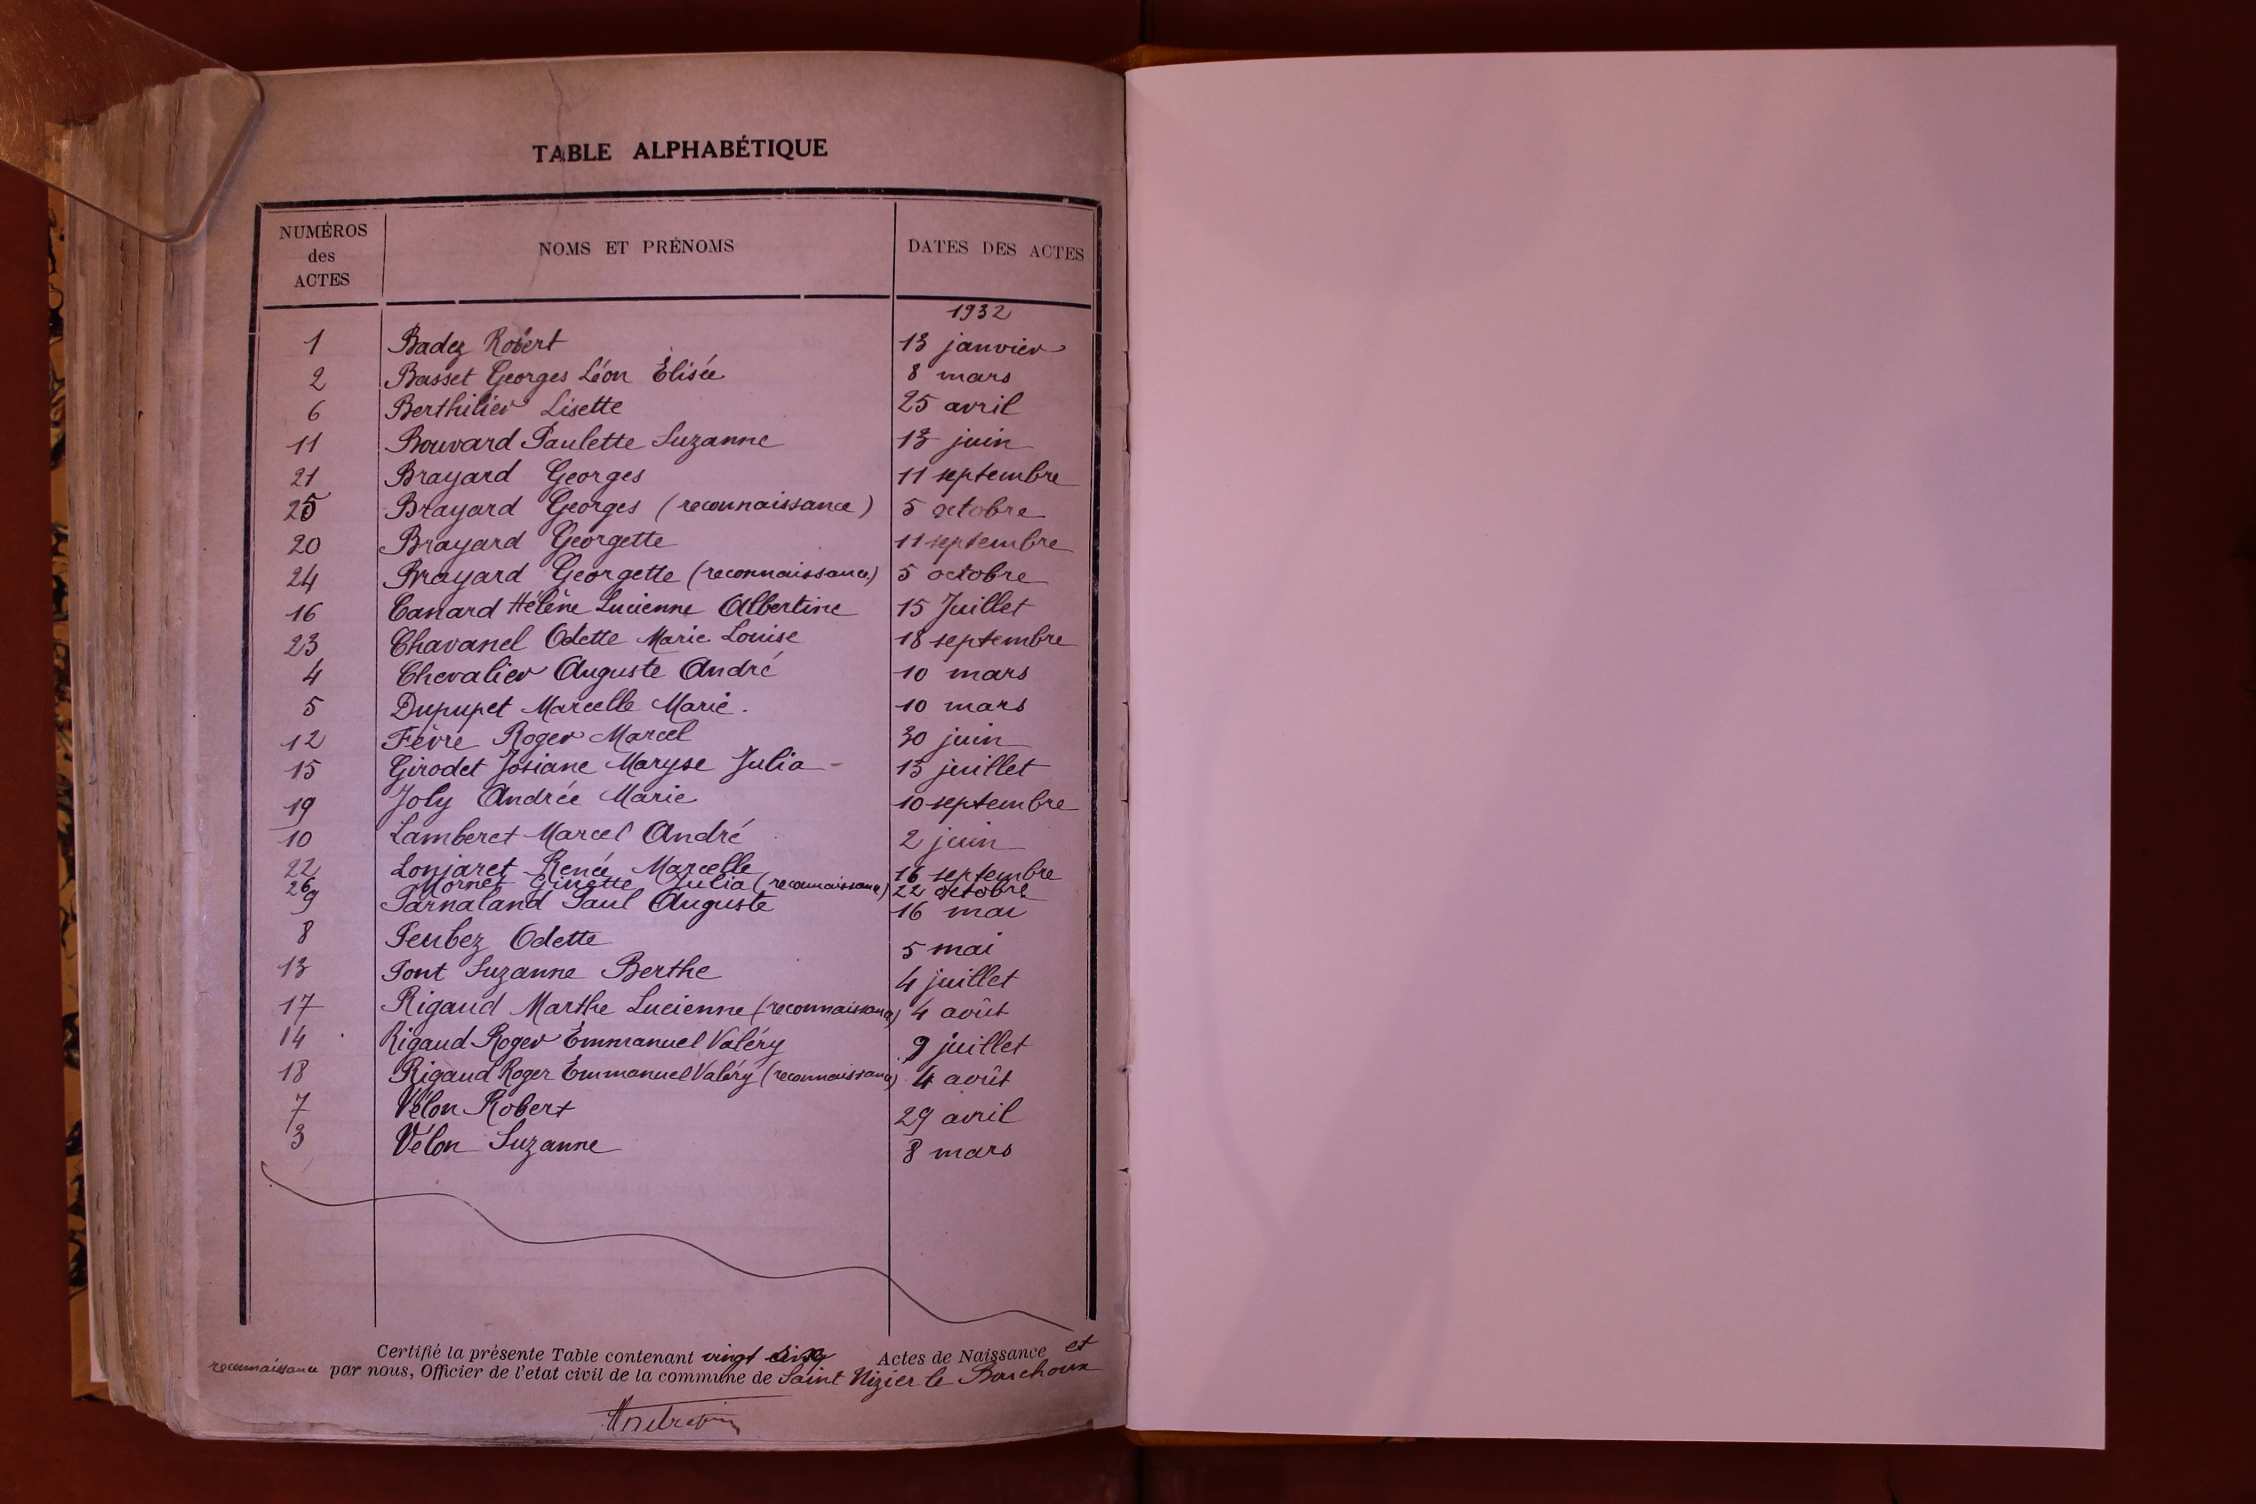 TABLE ALPHABÉTIQUE
NUMÉROS des ACTES NOMS ET PRÉNOMS DATES DES ACTES
1932
1 Badez Robert 13 janvier
2 Basset Georges Léon Élisée 8 mars
6 Berthilier Lisette 25 avril
11 Bouvard Paulette Suzanne 13 juin
21 Brayard Georges 11 septembre
25 Brayard Georges (reconnaissance) 5 octobre
20 Brayard Georgette 11 septembre
24 Brayard Georgette (reconnaissance) 5 octobre
16 Canard Hélène Lucienne Albertine 15 Juillet
23 Chavanel Odette Marie Louise 18 septembre
4 Chevalier Auguste André 10 mars
5 Dupupet Marcelle Marie. 10 mars
12 Fèvre Roger Marcel 30 juin
15 Girodet Josiane Maryse Julia - 13 juillet
19 Joly Andrée Marie 10 septembre
10 Lamberet Marcel André 2 juin
22 Lonjaret Renée Marcelle 16 septembre
26 Mornet Ginette Julia (reconnaissance) 22 octobre
9 Parnaland Paul Auguste 16 mai
8 Peubez Odette 5 mai
13 Pont Suzanne Berthe 4 juillet
17 Rigaud Marthe Lucienne (reconnaissance) 4 août
14 Rigaud Roger Emmanuel Valéry 9 juillet
18 Rigaud Roger Emmanuel Valéry (reconnaissance) 4 août
7 Vélon Robert 29 avril
3 Vélon Suzanne 8 mars
Certifié la présente Table contenant vingt Actes de Naissance et
reconnaissance par nous, Officier de l'état civil de la commune de Saint Nizier le Bouchoux